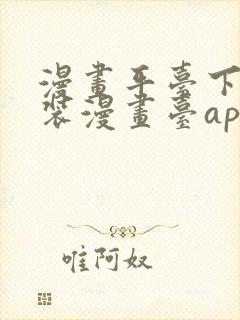 漫畫平臺下
裝漫畫臺ap
唯阿奴